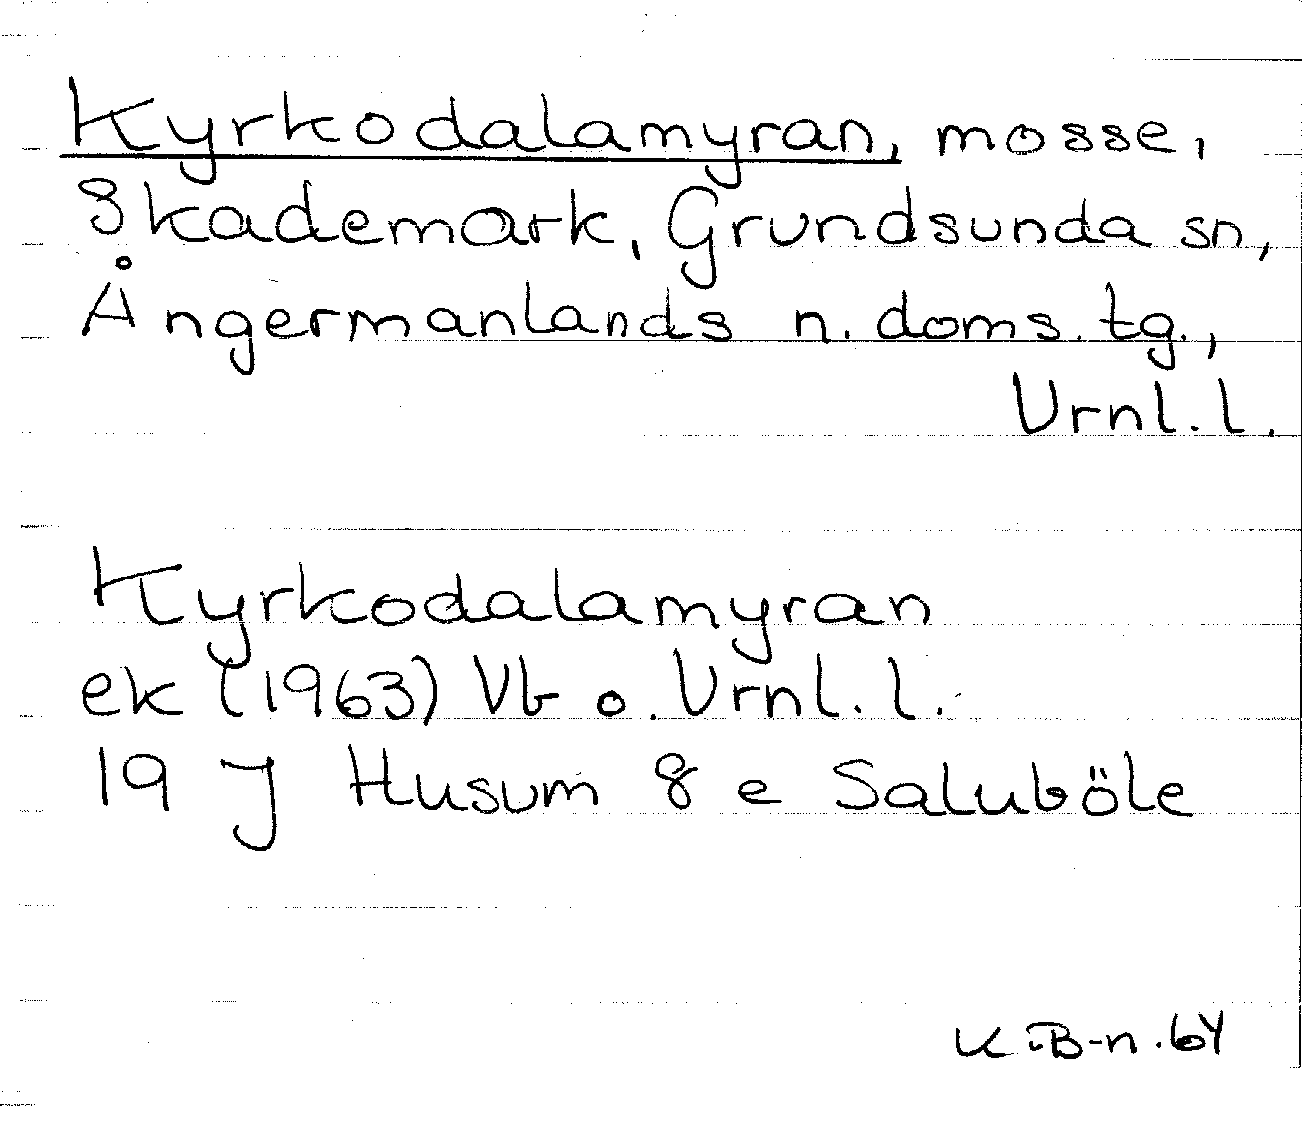 Kyrkodalamyran, mosse,
Skademark, Grundsunda sn,
Ångermanlands n. doms. tg.,
Vrnl. l.
Kyrkodalamyran
ek (1963) Vb o. Vrnl. l.
19 J Husum 8 e Saluböle
K.B-n. 64